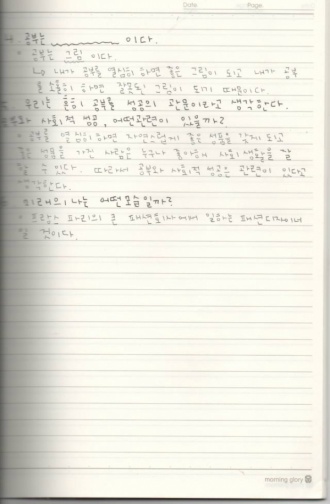 Date Page
공부는 ________ 이다.
공부는 그림 이다
↳ 내가 공부를 열심히 하면 좋은 그림이 되고 내가 공부
를 소홀히 하면 잘못된 그림이 되기 때문이다.
우리는 흔히 공부를 성공의 관문이라고 생각한다.
공부와 사회적 성공, 어떤관련이 있을까?
공부를 열심히 하면 자연스럽게 좋은 성품을 갖게 되고
좋은 성품을 가진 사람은 누구나 좋아해 사회생활을 잘
할 수 있다. 따라서 공부와 사회적 성공은 관련이 있다고
생각한다.
미래의 나는 어떤모습일까?
프랑스 파리의 큰 패션회사에서 일하는 패션디자이너
일 것이다.
morning glory